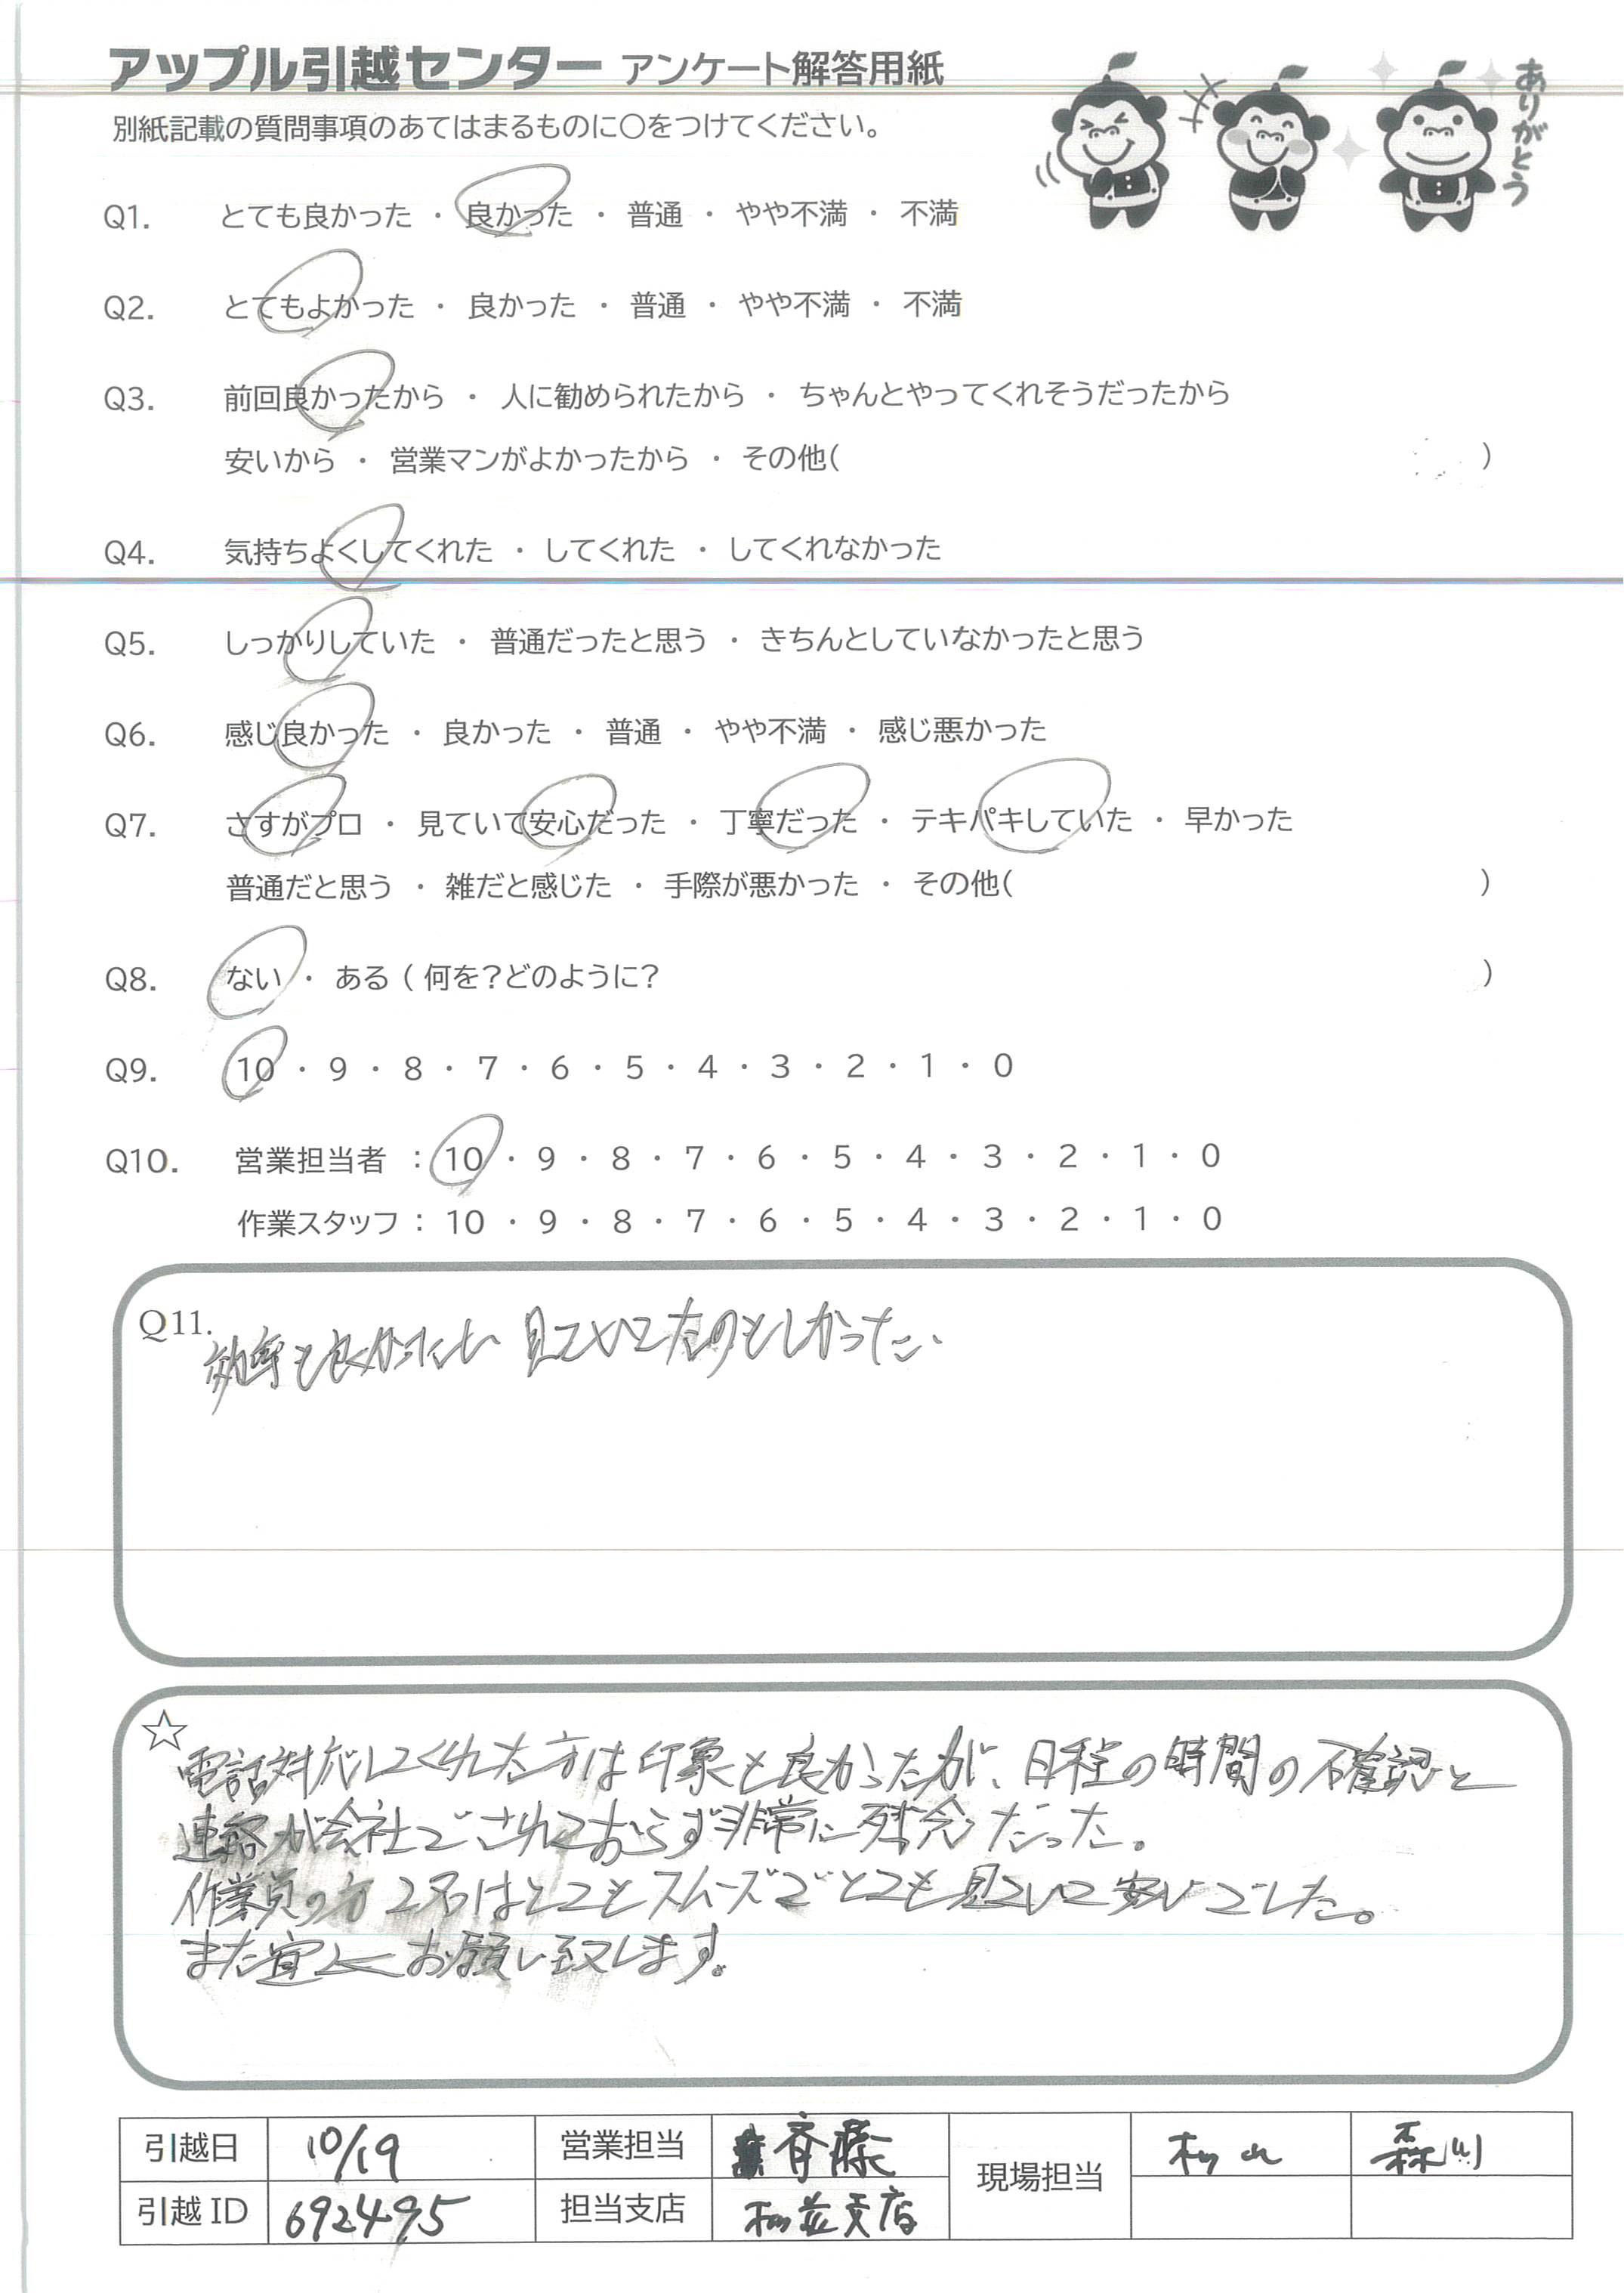 アップル引越センター アンケート解答用紙
ありがとう
別紙記載の質問事項のあてはまるものに○をつけてください。
Q1. とても良かった ・ 良かった ・ 普通 ・ やや不満 ・ 不満
Q2. とてもよかった ・ 良かった ・ 普通 ・ やや不満 ・ 不満
Q3. 前回良かったから ・ 人に勧められたから ・ ちゃんとやってくれそうだったから
安いから ・ 営業マンがよかったから ・ その他( )
Q4. 気持ちよくしてくれた ・ してくれた ・ してくれなかった
Q5. しっかりしていた ・ 普通だったと思う ・ きちんとしていなかったと思う
Q6. 感じ良かった ・ 良かった ・ 普通 ・ やや不満 ・ 感じ悪かった
Q7. さすがプロ ・ 見ていて安心だった ・ 丁寧だった ・ テキパキしていた ・ 早かった
普通だと思う ・ 雑だと感じた ・ 手際が悪かった ・ その他( )
Q8. ない ・ ある ( 何を?どのように? )
Q9. 10 ・ 9 ・ 8 ・ 7 ・ 6 ・ 5 ・ 4 ・ 3 ・ 2 ・ 1 ・ 0
Q10. 営業担当者 : 10 ・ 9 ・ 8 ・ 7 ・ 6 ・ 5 ・ 4 ・ 3 ・ 2 ・ 1 ・ 0
作業スタッフ : 10 ・ 9 ・ 8 ・ 7 ・ 6 ・ 5 ・ 4 ・ 3 ・ 2 ・ 1 ・ 0
Q11.
効率も良かったし、見ていてたのもしかった。
☆
電話対応してくれた方は印象も良かったが、日程の時間の確認と
連絡が会社でされておらず非常に残念だった。
作業員の方2名はとてもスムーズでとても見ていて安心でした。
また宜しくお願い致します。
引越日 10/19 営業担当 斉藤 現場担当 森川
引越ID 692495 担当支店 支店